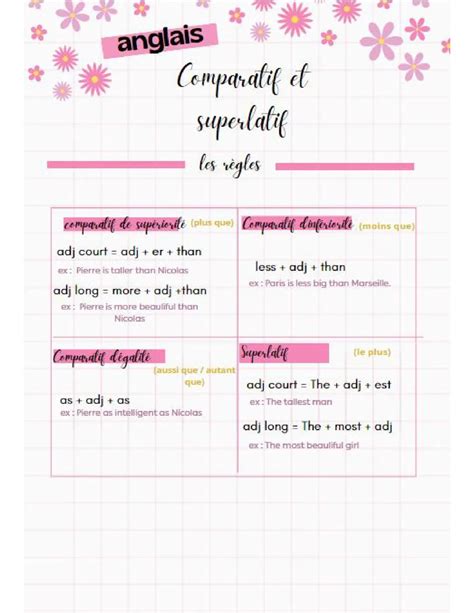 anglais
Comparatif et
superlatif
les règles
comparatif de supériorité (plus que)
adj court = adj + er + than
ex : Pierre is taller than Nicolas
adj long = more + adj +than
ex : Pierre is more beauliful than
Nicolas
Comparatif d'infériorité (moins que)
less + adj + than
ex : Paris is less big than Marseille.
Comparatif d'égalité
(aussi que / autant
que)
as + adj + as
ex : Pierre as intelligent as Nicolas
Superlatif (le plus)
adj court = The + adj + est
ex : The tallest man
adj long = The + most + adj
ex : The most beautiful girl